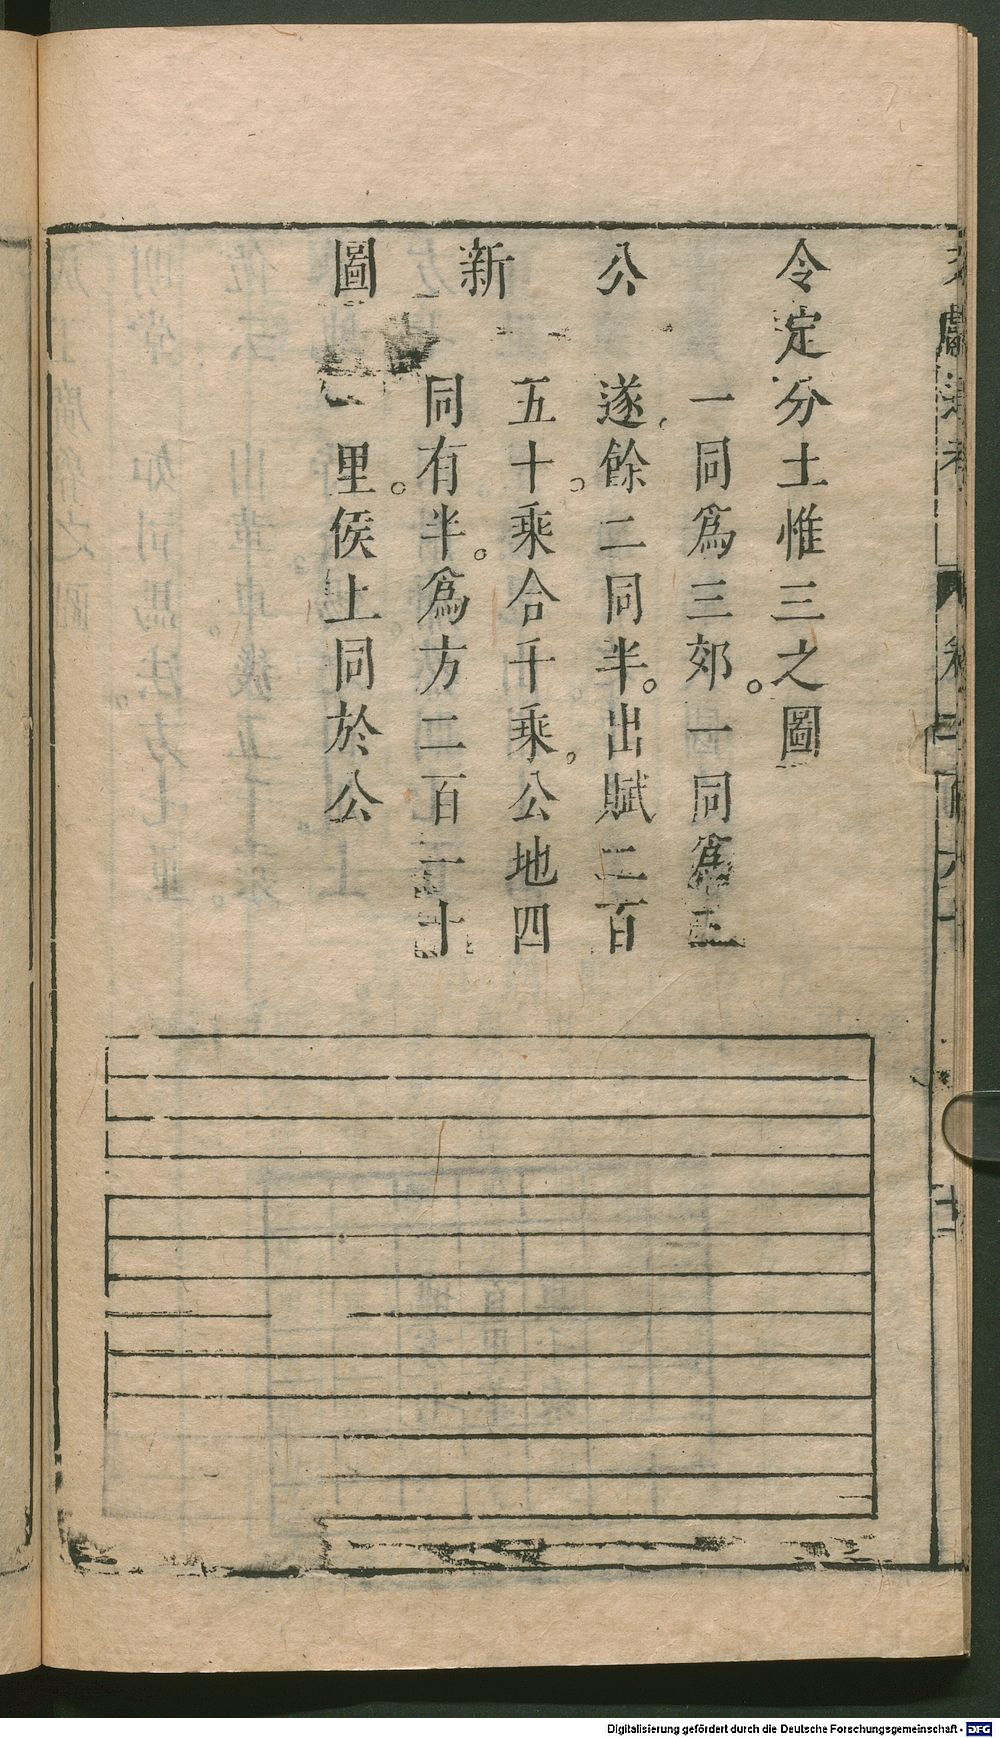 文獻通考 卷二百六十
令定分土惟三之圖
公新圖
一同爲三郊。一同爲三
遂餘二同半。出賦二百
五十。乘合千乘。公地四
同有半。爲方二百一十
里。侯上同於公
Digitalisierung gefördert durch die Deutsche Forschungsgemeinschaft - DFG